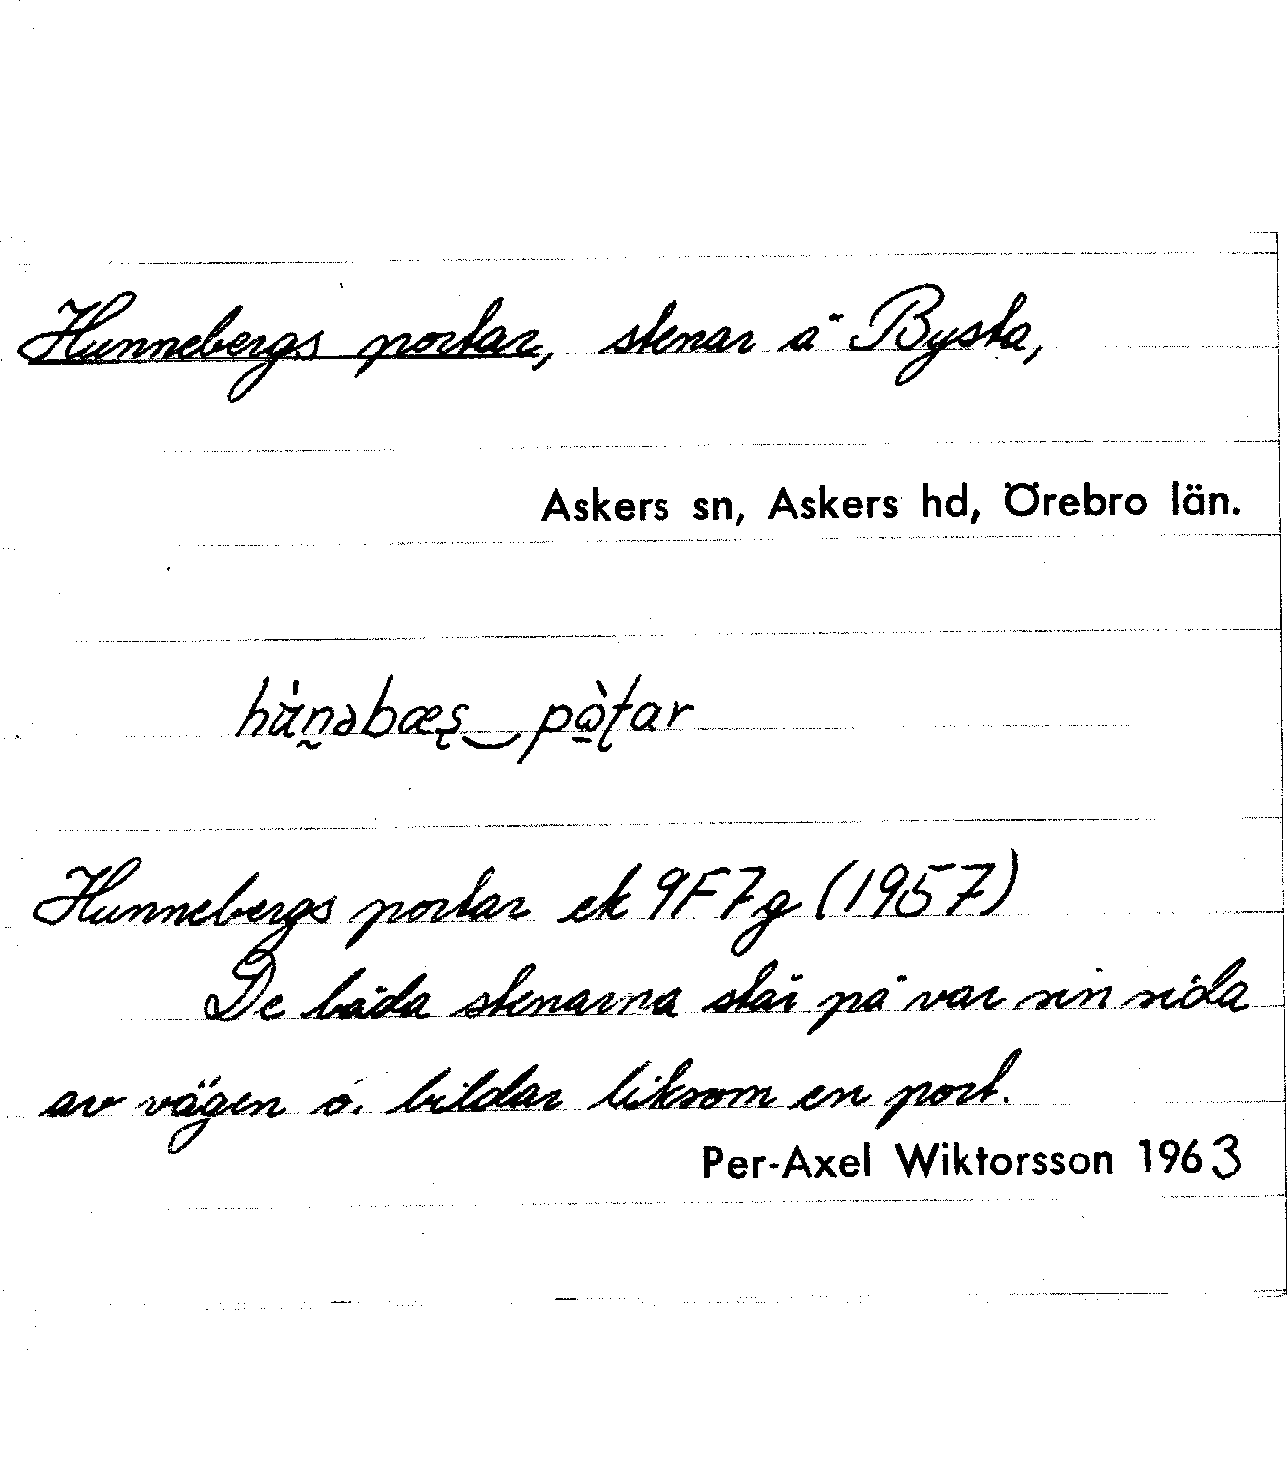 Hunnebergs portar, stenar å Bysta,
Askers sn, Askers hd, Örebro län.
Hunnebergs portar ek 9F7g (1957)
De båda stenarna står på var sin sida
av vägen o. bildar liksom en port.
Per-Axel Wiktorsson 1963